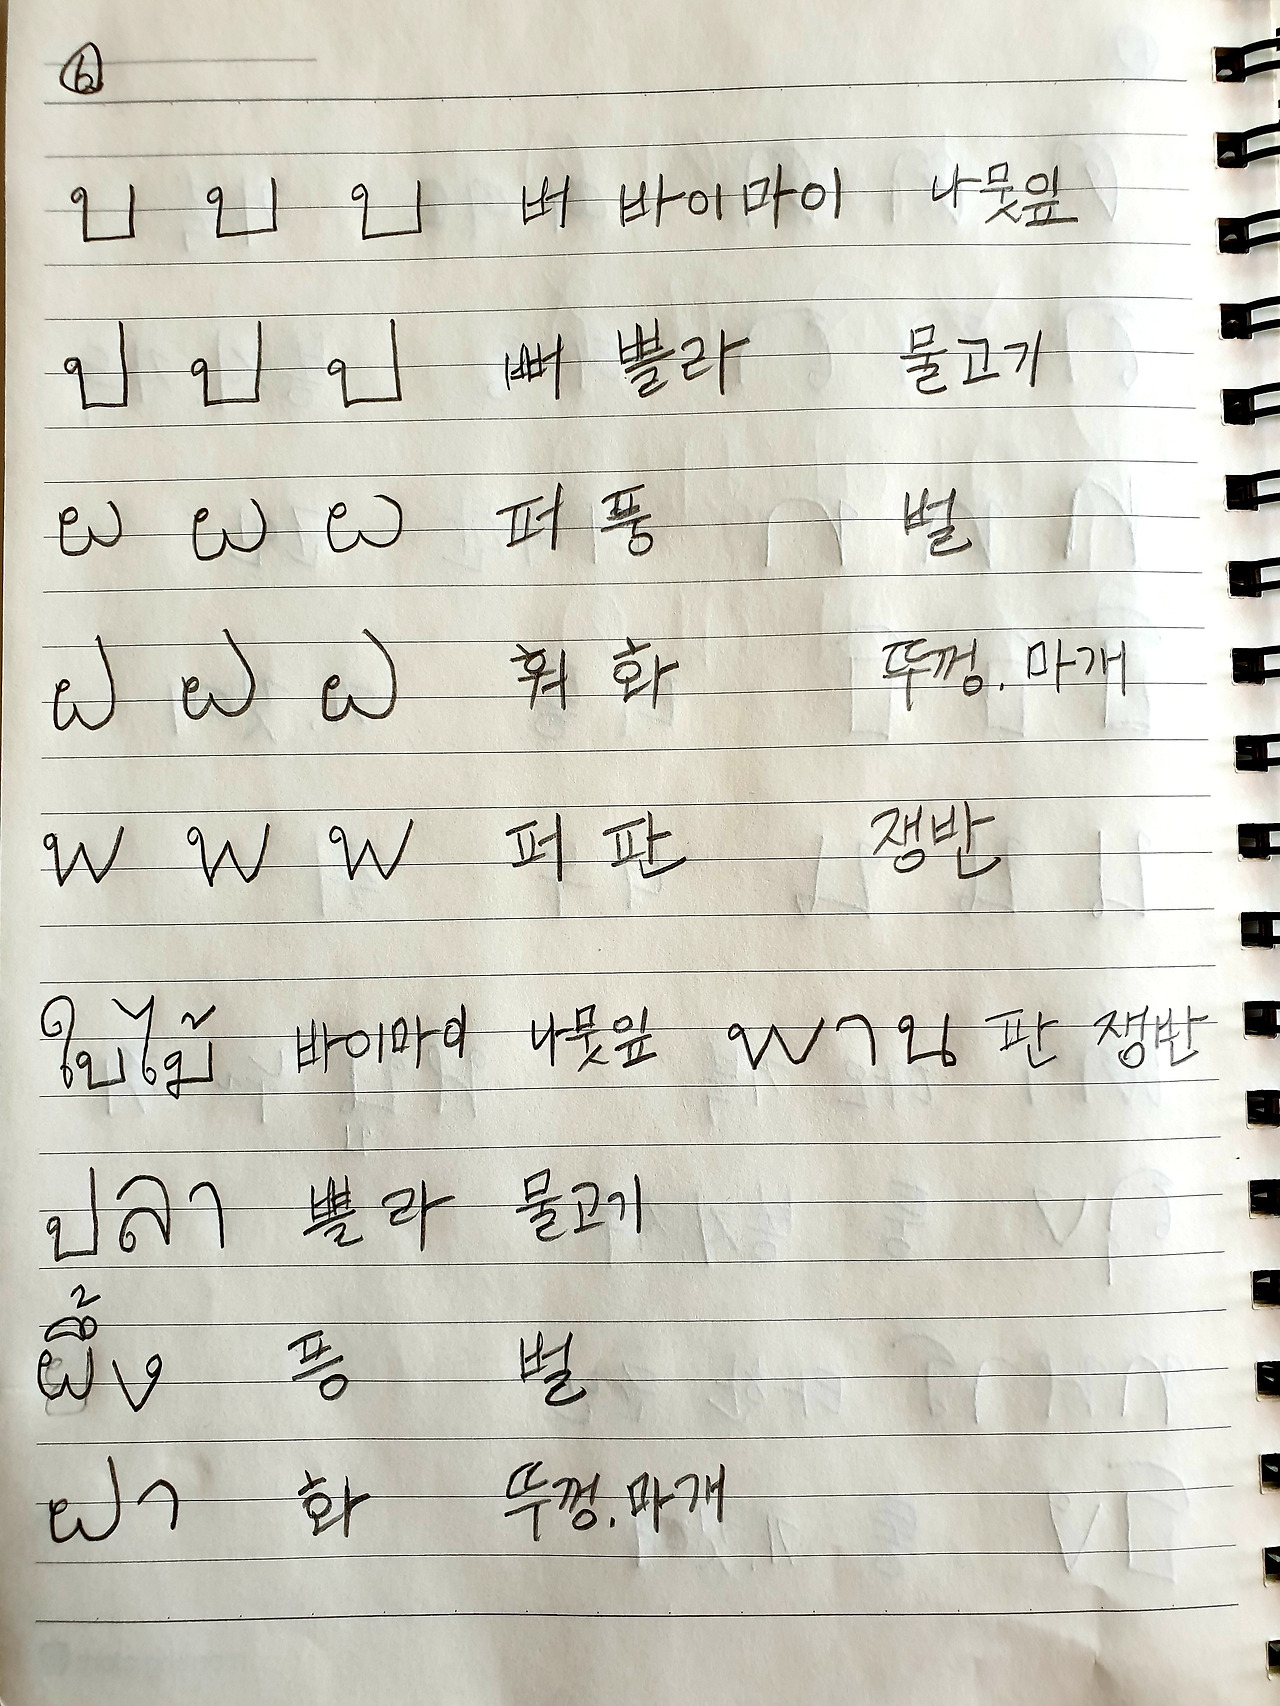 ⑥
บ บ บ 버 바이마이 나뭇잎
ป ป ป 뻐 쁠라 물고기
ผ ผ ผ 퍼 풍 벌
ฝ ฝ ฝ 훠 화 뚜껑. 마개
พ พ พ 퍼 판 쟁반
ใบไม้ 바이마이 나뭇잎 พาน 판 쟁반
ปลา 쁠라 물고기
ผึ้ง 픙 벌
ฝา 화 뚜껑. 마개